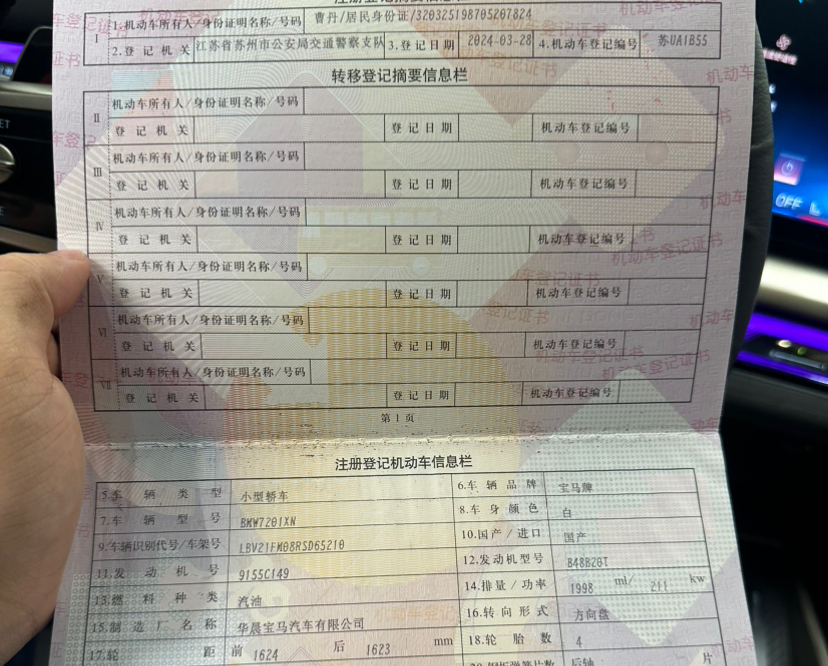 1.机动车所有人/身份证明名称/号码 曹丹/居民身份证/320325198705207824
I
2.登记机关 江苏省苏州市公安局交通警察支队 3.登记日期 2024-03-28 4.机动车登记编号 苏UA1B55
转移登记摘要信息栏
II
机动车所有人/身份证明名称/号码
登记机关 登记日期 机动车登记编号
III
机动车所有人/身份证明名称/号码
登记机关 登记日期 机动车登记编号
IV
机动车所有人/身份证明名称/号码
登记机关 登记日期 机动车登记编号
V
机动车所有人/身份证明名称/号码
登记机关 登记日期 机动车登记编号
VI
机动车所有人/身份证明名称/号码
登记机关 登记日期 机动车登记编号
VII
机动车所有人/身份证明名称/号码
登记机关 登记日期 机动车登记编号
第1页
注册登记机动车信息栏
5.车辆类型 小型轿车 6.车辆品牌 宝马牌
7.车辆型号 BMW7201XN 8.车身颜色 白
9.车辆识别代号/车架号 LBV21FM08RSD65210 10.国产/进口 国产
11.发动机号 9155C149 12.发动机型号 B48B20T
13.燃料种类 汽油 14.排量/功率 1998 ml/ 211 kw
15.制造厂名称 华晨宝马汽车有限公司 16.转向形式 方向盘
17.轮距 前 1624 后 1623 mm 18.轮胎数 4
后轴 片
OFF